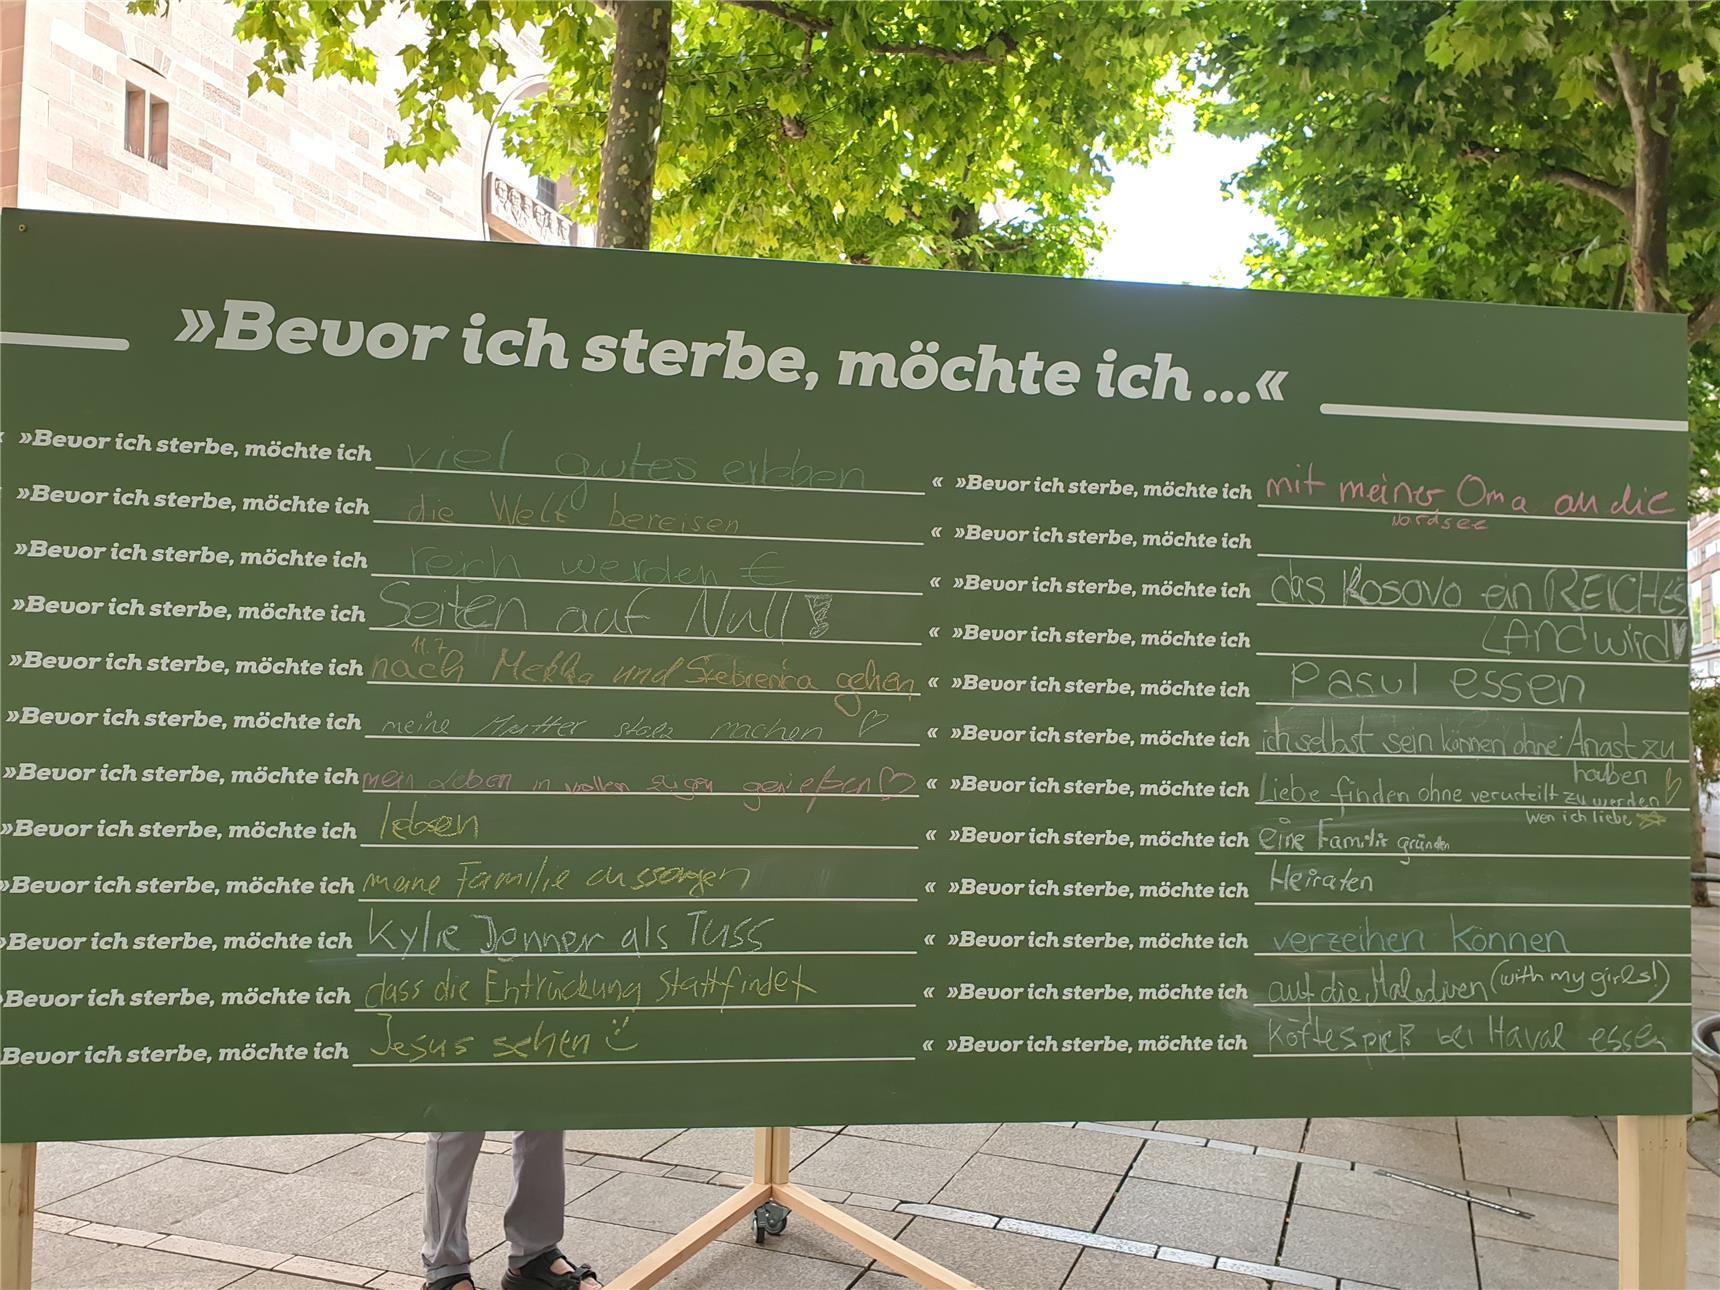 »Bevor ich sterbe, möchte ich ...«
»Bevor ich sterbe, möchte ich viel gutes erbben «
»Bevor ich sterbe, möchte ich die Welt bereisen «
»Bevor ich sterbe, möchte ich reich werden € «
»Bevor ich sterbe, möchte ich Seiten auf Null! «
11.7
»Bevor ich sterbe, möchte ich nach Mekka und Srebrenica gehen «
»Bevor ich sterbe, möchte ich meine Mutter stolz machen ♡ «
»Bevor ich sterbe, möchte ich mein Leben in vollen zügen genießen ♡ «
»Bevor ich sterbe, möchte ich leben «
»Bevor ich sterbe, möchte ich meine Familie «
»Bevor ich sterbe, möchte ich Kylie Jenner als Tuss «
»Bevor ich sterbe, möchte ich dass die Entrückung stattfindet «
Bevor ich sterbe, möchte ich Jesus sehen «
»Bevor ich sterbe, möchte ich mit meiner Oma an die
Nordsee
»Bevor ich sterbe, möchte ich
»Bevor ich sterbe, möchte ich das Kosovo ein REICHES
»Bevor ich sterbe, möchte ich LAND wird!
»Bevor ich sterbe, möchte ich Pasul essen
»Bevor ich sterbe, möchte ich ich selbst sein können ohne Angst zu
haben
»Bevor ich sterbe, möchte ich Liebe finden ohne verurteilt zu werden ♡
wen ich liebe
»Bevor ich sterbe, möchte ich eine Familie gründen
»Bevor ich sterbe, möchte ich Heiraten
»Bevor ich sterbe, möchte ich verzeihen können
»Bevor ich sterbe, möchte ich auf die Malediven (with my girls!)
»Bevor ich sterbe, möchte ich Köftespieß bei Haval essen